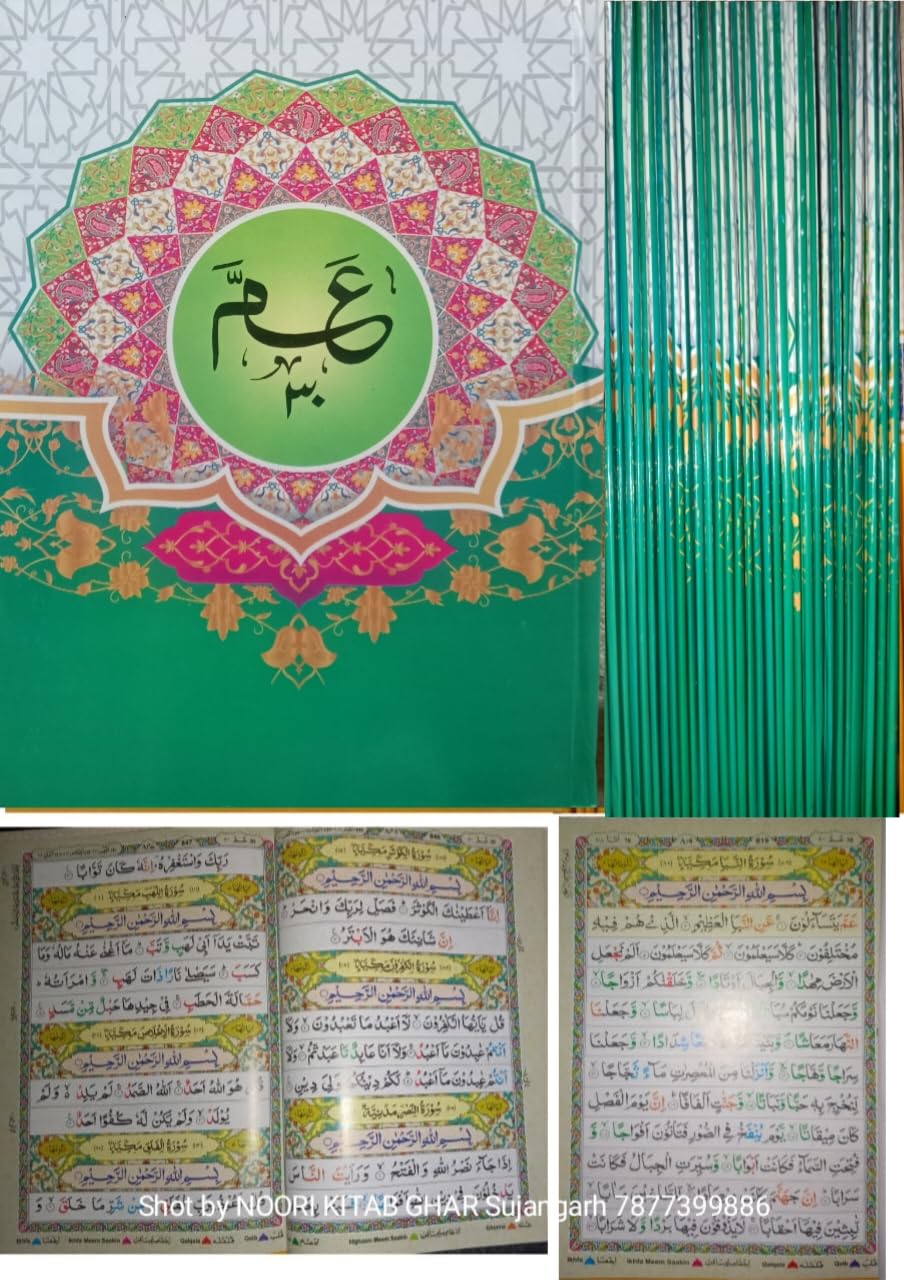 عَمَّ
٣٠
847
رَبِّكَ وَاسْتَغْفِرْهُ ؕ اِنَّهٗ كَانَ تَوَّابًا
سُوْرَةُ اللَّهَبِ مَكِّيَّةٌ
بِسْمِ اللهِ الرَّحْمٰنِ الرَّحِيْمِ
تَبَّتْ يَدَاۤ اَبِيْ لَهَبٍ وَّتَبَّ مَاۤ اَغْنٰى عَنْهُ مَالُهٗ وَمَا
كَسَبَ سَيَصْلٰى نَارًا ذَاتَ لَهَبٍ وَّامْرَاَتُهٗ
حَمَّالَةَ الْحَطَبِ فِيْ جِيْدِهَا حَبْلٌ مِّنْ مَّسَدٍ
سُوْرَةُ الْاِخْلَاصِ مَكِّيَّةٌ
بِسْمِ اللهِ الرَّحْمٰنِ الرَّحِيْمِ
قُلْ هُوَ اللهُ اَحَدٌ اَللهُ الصَّمَدُ لَمْ يَلِدْ وَلَمْ
يُوْلَدْ وَلَمْ يَكُنْ لَّهٗ كُفُوًا اَحَدٌ
سُوْرَةُ الْفَلَقِ مَكِّيَّةٌ
بِسْمِ اللهِ الرَّحْمٰنِ الرَّحِيْمِ
مِنْ شَرِّ مَا خَلَقَ وَ
Ikhfa Ikhfa Meem Saakin Qalqala Qalb
سُوْرَةُ الْكَوْثَرِ مَكِّيَّةٌ
بِسْمِ اللهِ الرَّحْمٰنِ الرَّحِيْمِ
اِنَّاۤ اَعْطَيْنٰكَ الْكَوْثَرَ فَصَلِّ لِرَبِّكَ وَانْحَرْ
اِنَّ شَانِئَكَ هُوَ الْاَبْتَرُ
سُوْرَةُ الْكٰفِرُوْنَ مَكِّيَّةٌ
بِسْمِ اللهِ الرَّحْمٰنِ الرَّحِيْمِ
قُلْ يٰۤاَيُّهَا الْكٰفِرُوْنَ لَاۤ اَعْبُدُ مَا تَعْبُدُوْنَ وَلَاۤ
اَنْتُمْ عٰبِدُوْنَ مَاۤ اَعْبُدُ وَلَاۤ اَنَا عَابِدٌ مَّا عَبَدْتُّمْ وَلَاۤ
اَنْتُمْ عٰبِدُوْنَ مَاۤ اَعْبُدُ لَكُمْ دِيْنُكُمْ وَلِيَ دِيْنِ
سُوْرَةُ النَّصْرِ مَدَنِيَّةٌ
بِسْمِ اللهِ الرَّحْمٰنِ الرَّحِيْمِ
اِذَا جَآءَ نَصْرُ اللهِ وَالْفَتْحُ وَرَاَيْتَ النَّاسَ
Idghaam Meem Saakin Ghunna
819
سُوْرَةُ النَّبَاِ مَكِّيَّةٌ
بِسْمِ اللهِ الرَّحْمٰنِ الرَّحِيْمِ
عَمَّ يَتَسَآءَلُوْنَ عَنِ النَّبَاِ الْعَظِيْمِ الَّذِيْ هُمْ فِيْهِ
مُخْتَلِفُوْنَ كَلَّا سَيَعْلَمُوْنَ ثُمَّ كَلَّا سَيَعْلَمُوْنَ اَلَمْ نَجْعَلِ
الْاَرْضَ مِهٰدًا وَّالْجِبَالَ اَوْتَادًا وَّخَلَقْنٰكُمْ اَزْوَاجًا
وَّجَعَلْنَا نَوْمَكُمْ سُبَاتًا لِبَاسًا وَّجَعَلْنَا
النَّهَارَ مَعَاشًا وَّبَنَيْنَا شِدَادًا وَّجَعَلْنَا
سِرَاجًا وَّهَّاجًا وَّاَنْزَلْنَا مِنَ الْمُعْصِرٰتِ مَآءً ثَجَّاجًا
لِّنُخْرِجَ بِهٖ حَبًّا وَّنَبَاتًا وَّجَنّٰتٍ اَلْفَافًا اِنَّ يَوْمَ الْفَصْلِ
كَانَ مِيْقَاتًا يَّوْمَ يُنْفَخُ فِي الصُّوْرِ فَتَاْتُوْنَ اَفْوَاجًا وَّ
فُتِحَتِ السَّمَآءُ فَكَانَتْ اَبْوَابًا وَّسُيِّرَتِ الْجِبَالُ فَكَانَتْ
سَرَابًا اِنَّ جَهَنَّمَ كَانَتْ مِرْصَادًا لِّلطَّاغِيْنَ مَاٰبًا
لّٰبِثِيْنَ فِيْهَاۤ اَحْقَابًا لَا يَذُوْقُوْنَ فِيْهَا بَرْدًا وَّلَا شَرَابًا
Ikhfa Ikhfa Meem Saakin Qalqala Qalb
Shot by NOORI KITAB GHAR Sujangarh 7877399886